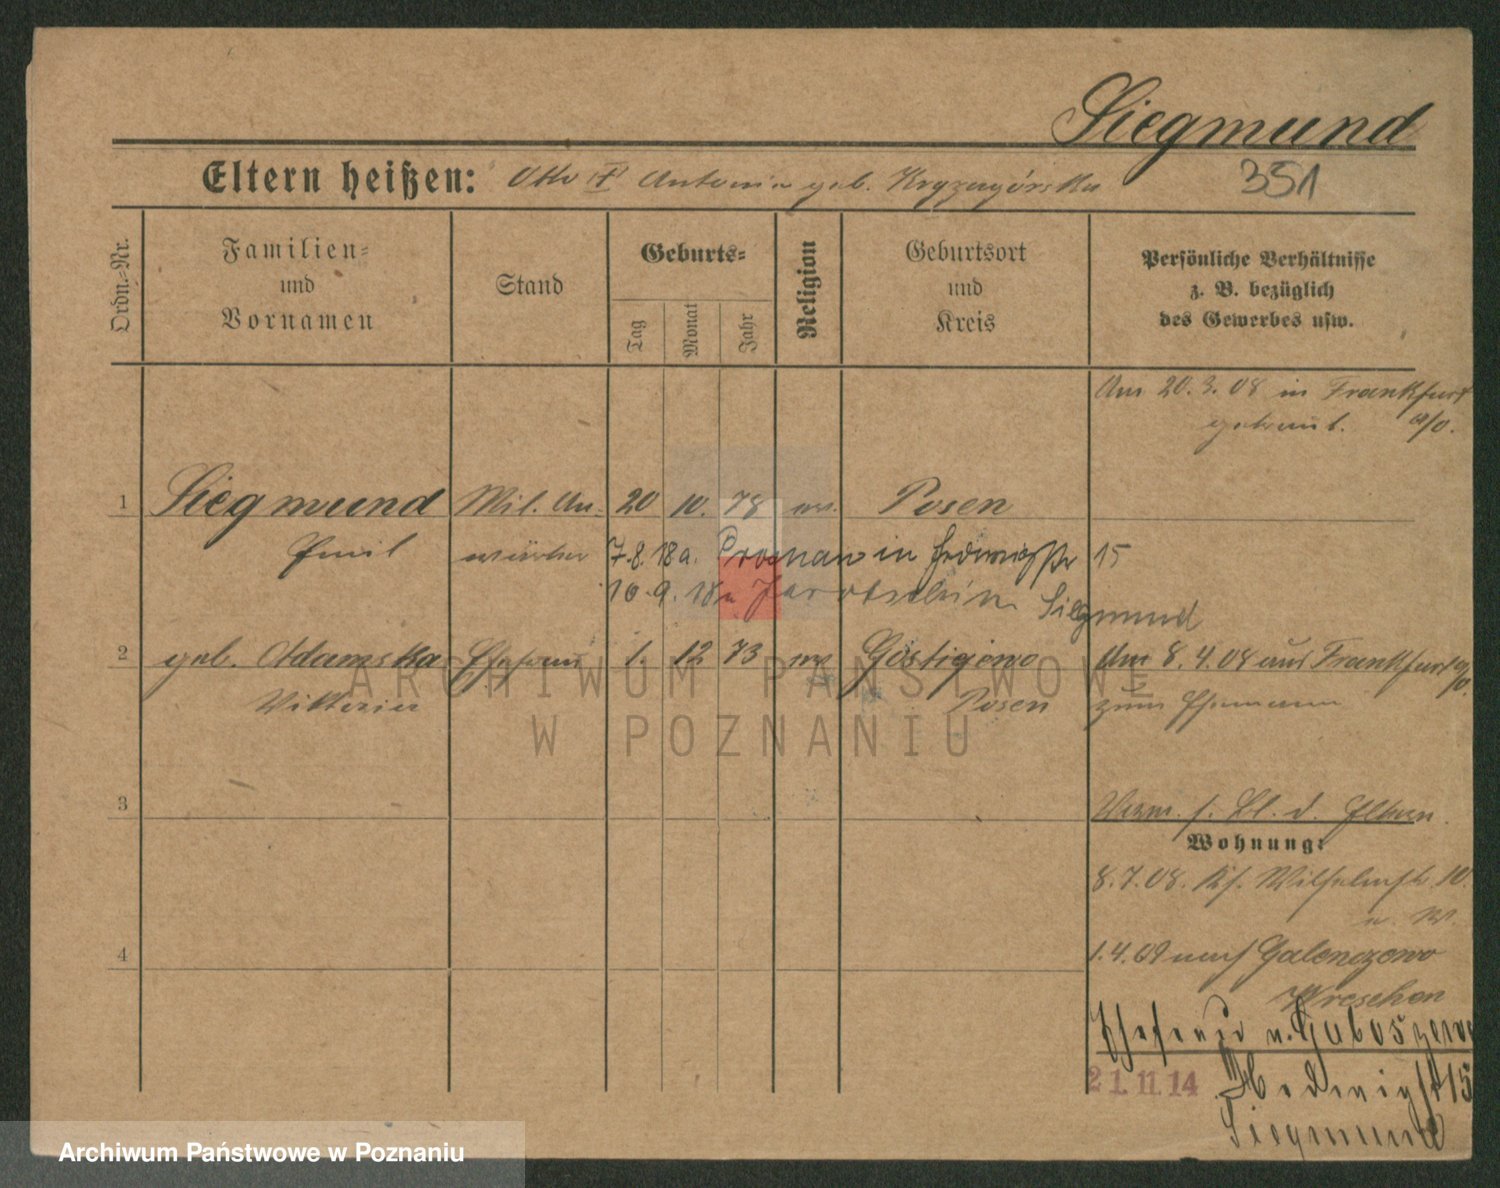 Siegmund
Eltern heißen: Otto † Antonie geb. Krzyzagórska 351
Ordn.-Nr.
Familien-
und
Vornamen
Stand
Geburts-
Tag
Monat
Jahr
Religion
Geburtsort
und
Kreis
Persönliche Verhältnisse
z. B. bezüglich
des Gewerbes usw.
Am 20.3.08 in Frankfurt
getraut. a/O.
1 Siegmund Mil. An- 20 10. 78 Posen
Emil wärter 7.8.18 a. in Hedwigstr 15
10.9.18 Siegmund
2 geb. Adamska Ehefrau 1. 12 73 Am 8.4.08 aus Frankfurt a/O.
Viktoria Posen zum Ehemann
3
d. Eltern.
Wohnung:
8.7.08. Wilhelmstr. 10.
4 1.4.09 nach
Wreschen
Ehefrau v.
21.11.14 Hedwigst 15
Siegmund
ARCHIWUM PAŃSTWOWE
W POZNANIU
Archiwum Państwowe w Poznaniu